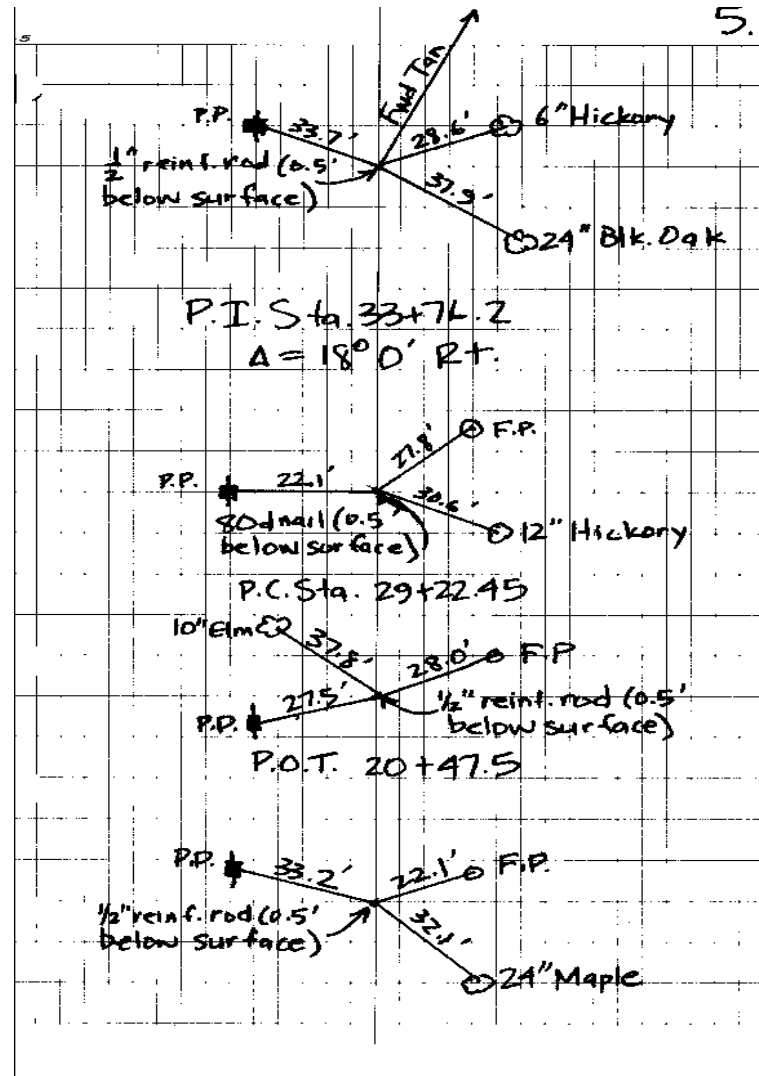 5.
5
Fwd Tan
P.P.
33.7'
28.6'
6" Hickory
1/2" reinf. rod (0.5'
below surface)
37.9'
24" Blk. Oak
P.I. Sta. 33+74.2
Δ = 18° 0' Rt.
27.8'
F.P.
P.P.
22.1'
30.6'
80d nail (0.5
below surface)
12" Hickory
P.C. Sta. 29+22.45
10" Elm
37.8'
28.0'
F.P
27.5'
P.P.
1/2" reinf. rod (0.5'
below surface)
P.O.T. 20+47.5
P.P.
33.2'
22.1'
F.P.
1/2" reinf. rod (0.5'
below surface)
24" Maple